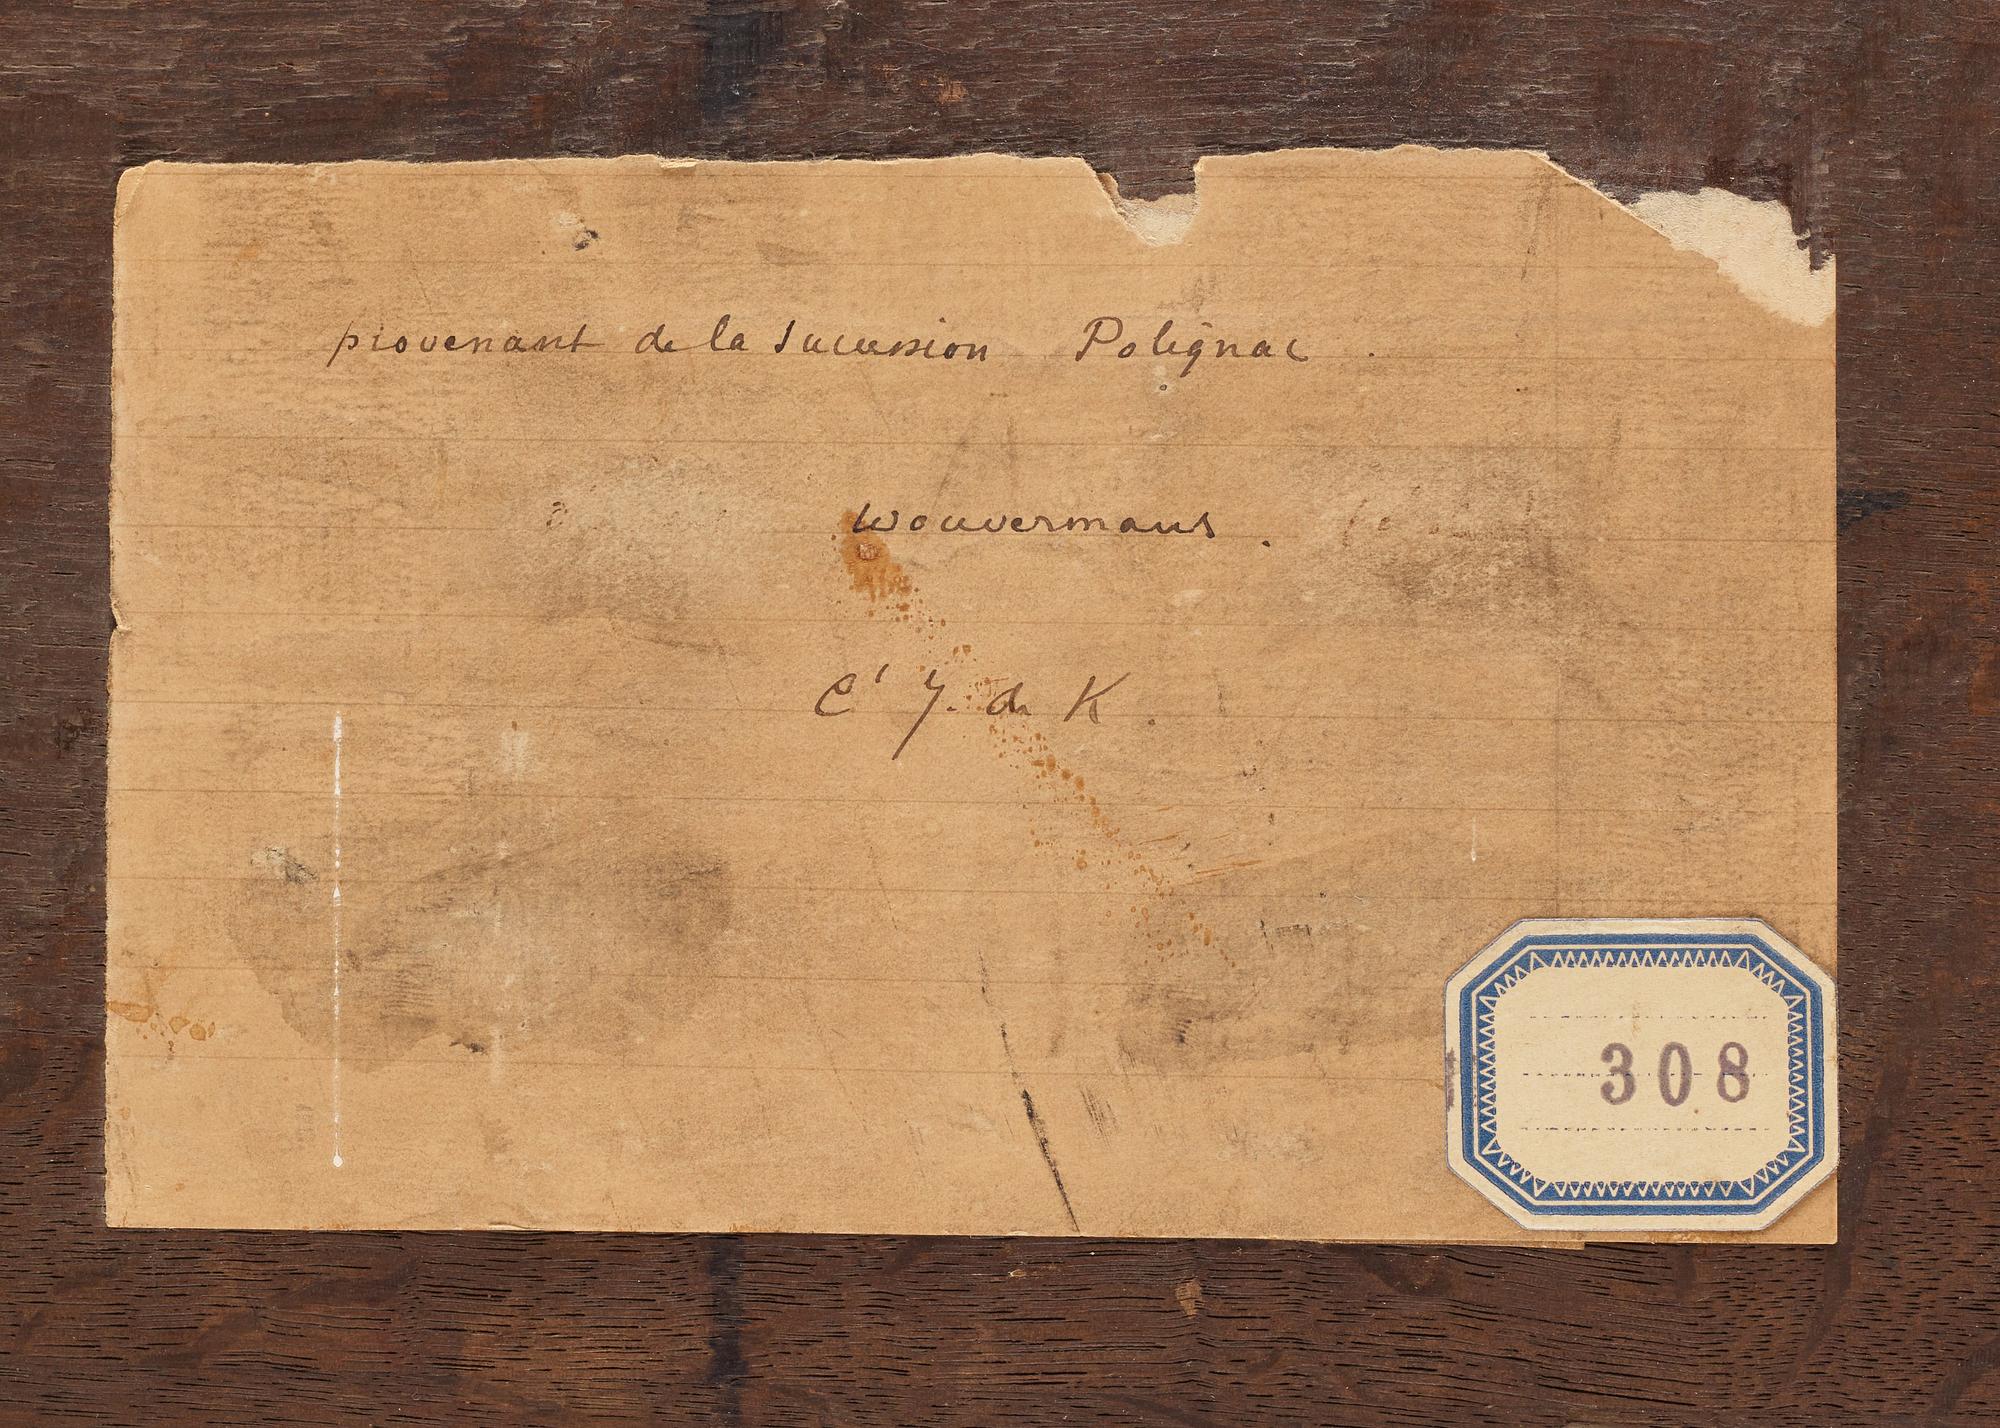 provenant de la succession Polignac.
Wouvermans.
Ct J. de K.
308